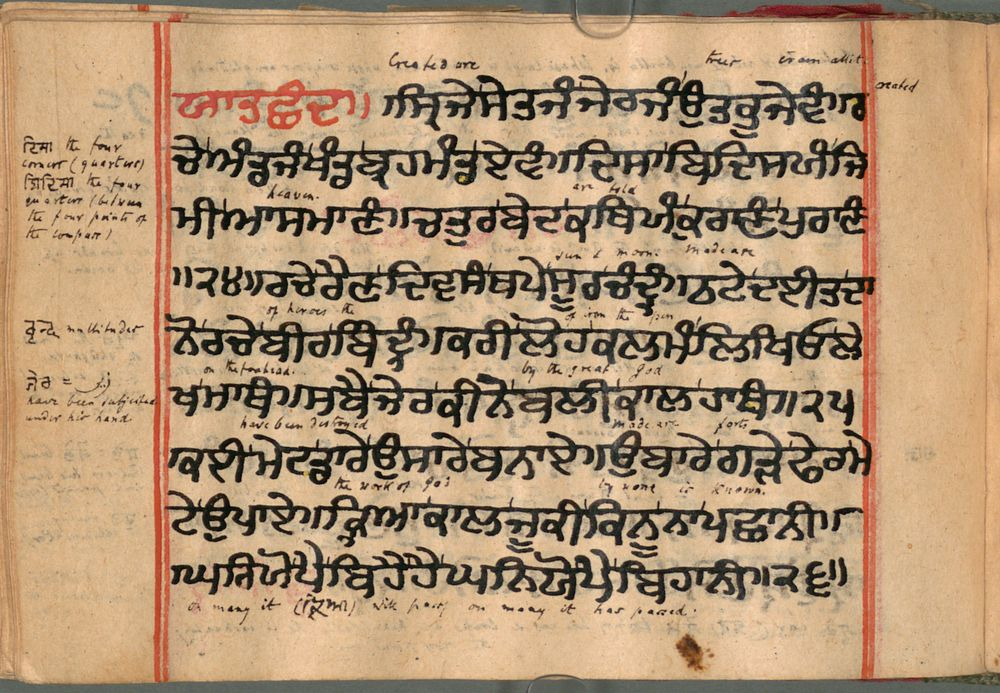 Created are trees
created
ਯਾਤ ਛੰਦ॥ ॥ਸ੍ਰਿਜੇ ਸੇਤਜੰ ਜੇਰਜੰ ਉਤਭੁਜੇਵੰ॥ਰ
ਚੇ ਅੰਡਜੰ ਖੰਡ ਬ੍ਰਹਮੰਡ ਏਵੰ॥ਦਿਸਾ ਬਿਦਿਸਯੰ ਜਿ
heaven. are told
ਮੀ ਆਸਮਾਣੰ॥ਚਤੁਰ ਬੇਦ ਕਥਿਯੰ ਕੁਰਾਣੰ ਪੁਰਾਣੰ
sun & moon. made are
॥੨੪॥ਰਚੇ ਰੈਣ ਦਿਵਸੰ ਥਪੇ ਸੂਰ ਚੰਦ੍ਰੰ॥ਠਟੇ ਦਈਤ ਦਾ
of heroes the of iron the pen
ਨੋ ਰਚੇ ਬੀਰ ਬਿੰਦ੍ਰੰ॥ਕਰੀ ਲੋਹ ਕਲਮੰ ਲਿਖਿਓ ਲੇ
on the forehead. by the great god
ਖ ਮਾਥੰ॥ਸਬੈ ਜੇਰ ਕੀਨੋ ਬਲੀ ਕਾਲ ਹਾਥੰ॥੨੫
have been destroyed made are forts
॥ਕਈ ਮੇਟ ਡਾਰੇ ਉਸਾਰੇ ਬਨਾਏ॥ਉਬਾਰੇ ਗੜੇ ਫੇਰ ਮੇ
the work of God by none is known.
ਟੇ ਉਪਾਏ॥ਕ੍ਰਿਆ ਕਾਲ ਜੂ ਕੀ ਕਿਨੂ ਨਾ ਪਛਾਨੀ॥
ਘਨਿਯੋ ਪੈ ਬਿਹੈ ਹੈ ਘਨਿਯੋ ਪੈ ਬਿਹਾਨੀ॥੨੬॥
on many it will pass on many it has passed.
ਦਿਸਾ the four
corners (quarters)
ਬਿਦਿਸਾ the four
quarters (between
the four points of
the compass)
multitudes
ਜੇਰ = زير
have been subjected
under his hand